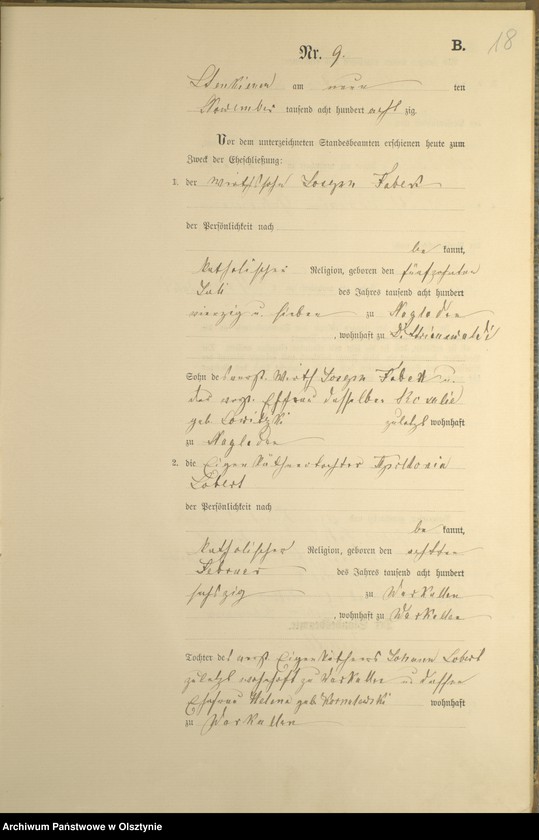 B.
18
Nr. 9.
am neun ten
November tausend acht hundert acht zig.
Vor dem unterzeichneten Standesbeamten erschienen heute zum
Zweck der Eheschließung:
1. der Wirthssohn Joseph Faber
der Persönlichkeit nach
be kannt,
katholischer Religion, geboren den fünfzehnten
Juli des Jahres tausend acht hundert
vierzig u. sieben zu Nagladen
, wohnhaft zu Dietrichswalde
Sohn des verst. Wirth Joseph Faber u.
der verst. Ehefrau desselben Rosalia
geb. zuletzt wohnhaft
zu Nagladen
2. die Eigenkäthnertochter Apollonia
Lobert
der Persönlichkeit nach
be kannt,
katholischer Religion, geboren den achten
Februar des Jahres tausend acht hundert
sechszig zu Warkallen
, wohnhaft zu Warkallen
Tochter des verst. Eigenkäthners Johann Lobert
zuletzt wohnhaft zu Warkallen u. dessen
Ehefrau Helena geb. wohnhaft
zu Warkallen
Archiwum Państwowe w Olsztynie